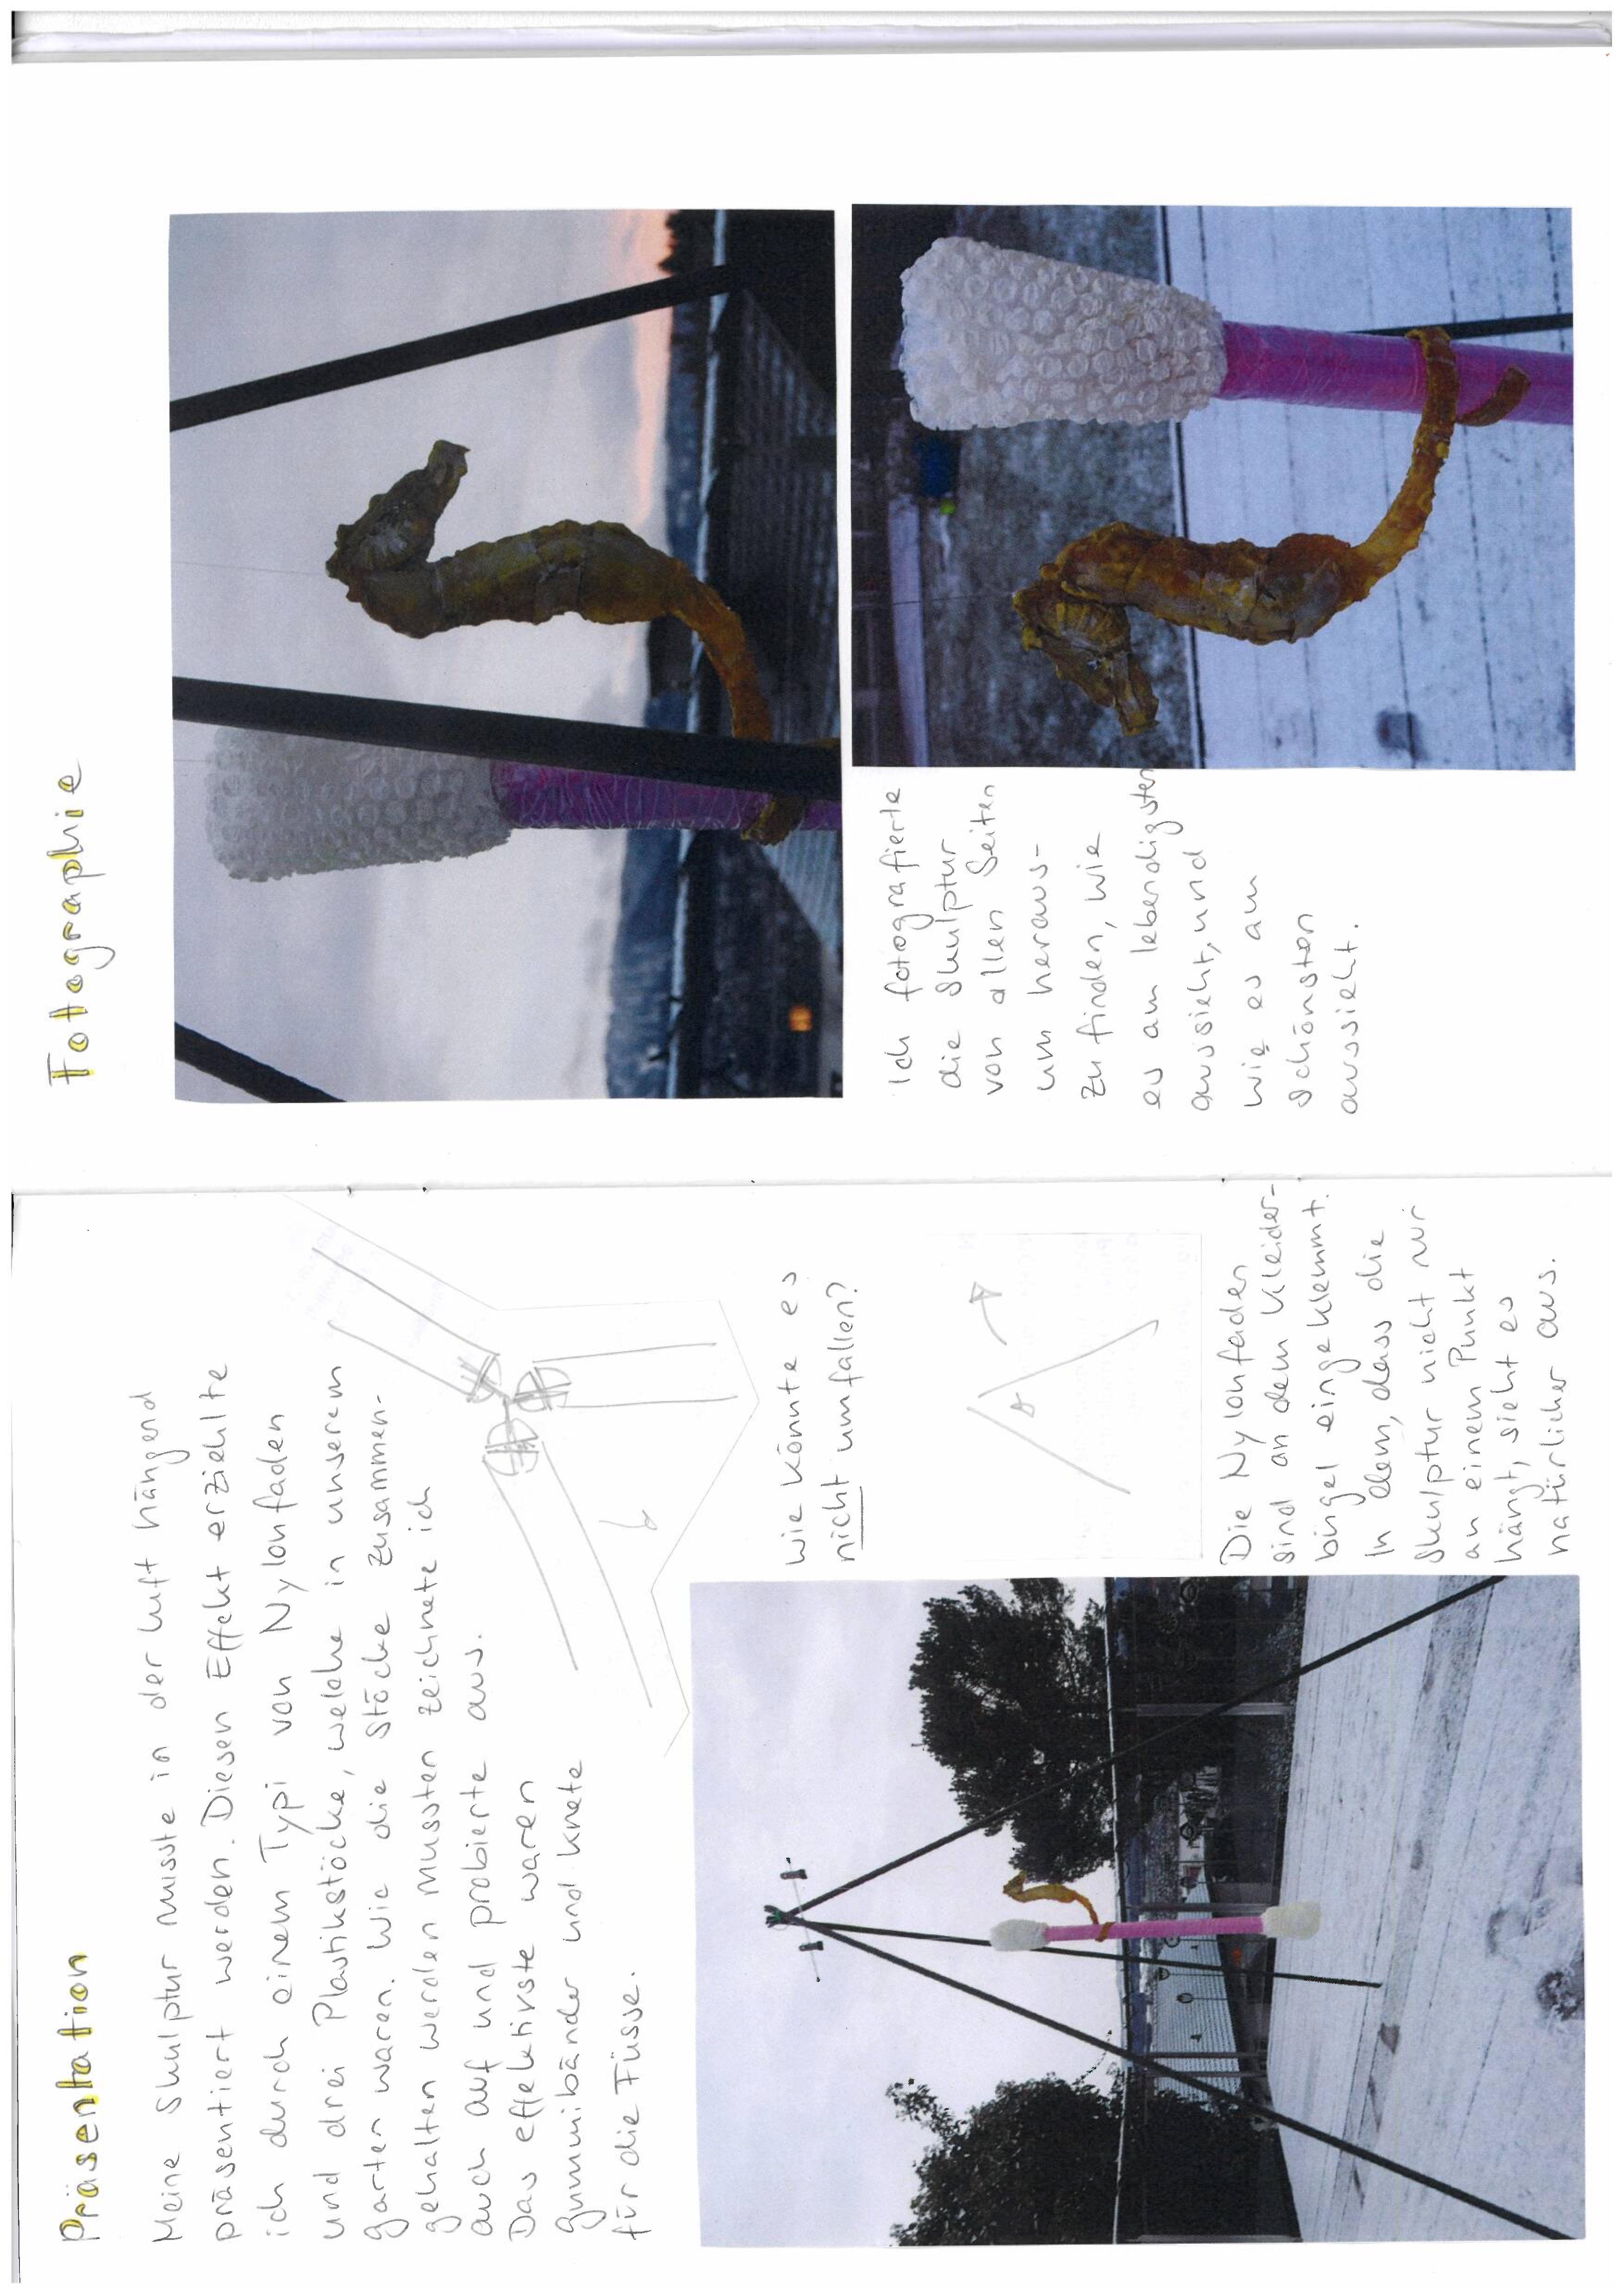 Präsentation
Meine Skulptur musste in der Luft hängend
präsentiert werden. Diesen Effekt erziehlte
ich durch einem Typi von Nylonfaden
und drei Plastikstöcke, welche in unserem
Garten waren. Wie die Stöcke zusammen-
gehalten werden mussten zeichnete ich
auch auf und probierte aus.
Das effektivste waren
Gummibänder und Knete
für die Füsse.
Wie könnte es
nicht umfallen?
Die Nylonfaden
sind an dem Kleider-
bügel eingeklemmt.
In dem, dass die
Skulptur nicht nur
an einem Punkt
hängt, sieht es
natürlicher aus.
Fotographie
Ich fotografierte
die Skulptur
von allen Seiten
um heraus-
zufinden, wie
es am lebendigsten
aussieht, und
wie es am
schönsten
aussieht.